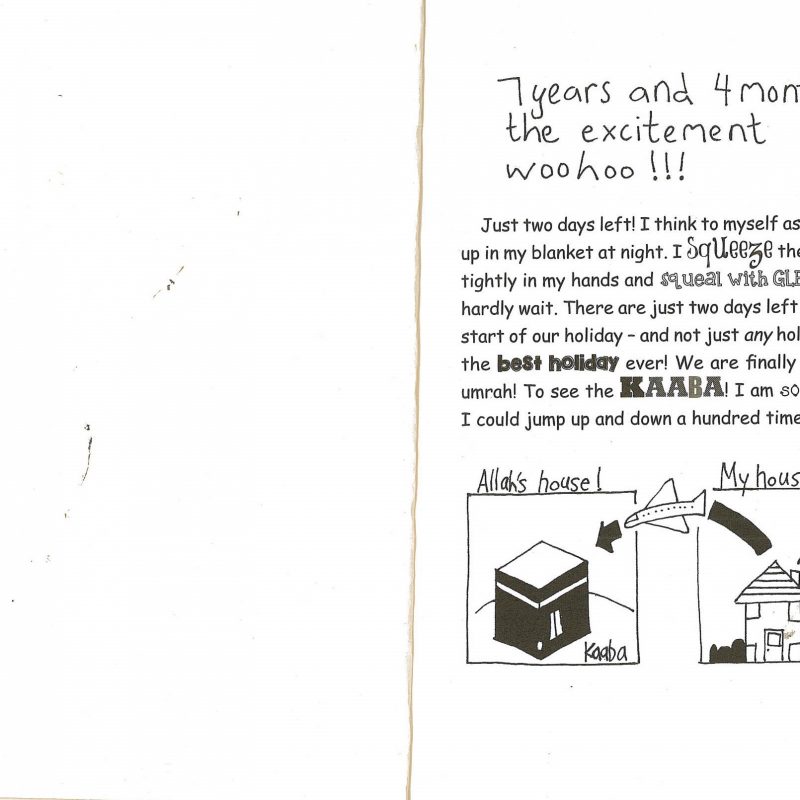 7 years and 4 mon
the excitement
woohoo!!!
Just two days left! I think to myself as
up in my blanket at night. I SqUeeze the
tightly in my hands and squeal with GLE
hardly wait. There are just two days left
start of our holiday – and not just any hol
the best holiday ever! We are finally
umrah! To see the KAABA! I am so
I could jump up and down a hundred time
Allah's house!
My hous
Kaaba